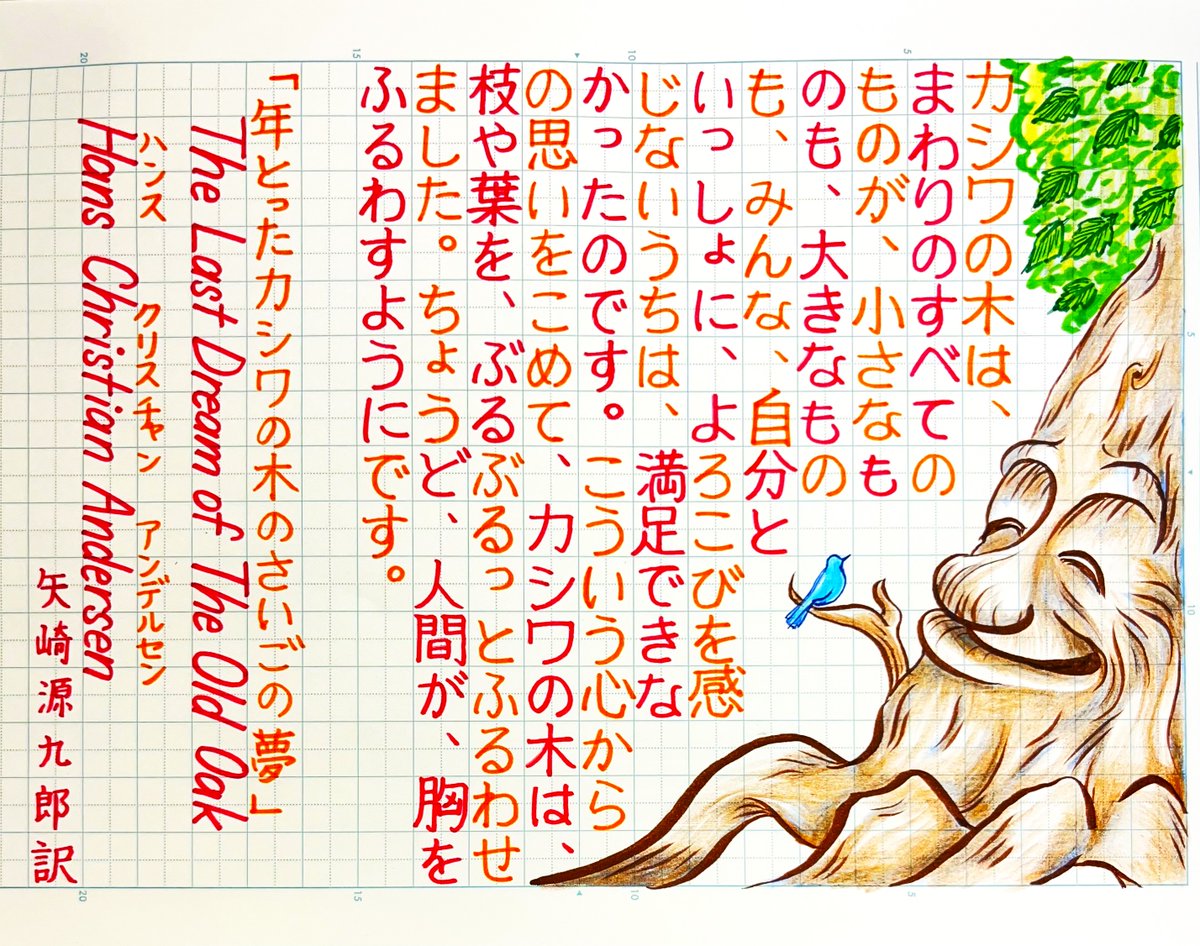 カシワの木は、
まわりのすべての
ものが、小さなも
のも、大きなもの
も、みんな、自分と
いっしょに、よろこびを感
じないうちは、満足できな
かったのです。こういう心から
の思いをこめて、カシワの木は、
枝や葉を、ぶるぶるっとふるわせ
ました。ちょうど、人間が、胸を
ふるわすようにです。
「年とったカシワの木のさいごの夢」
The Last Dream of The Old Oak
ハンス クリスチャン アンデルセン
Hans Christian Andersen
矢崎源九郎訳
5
10
15
20
5
10
15
20
5
10